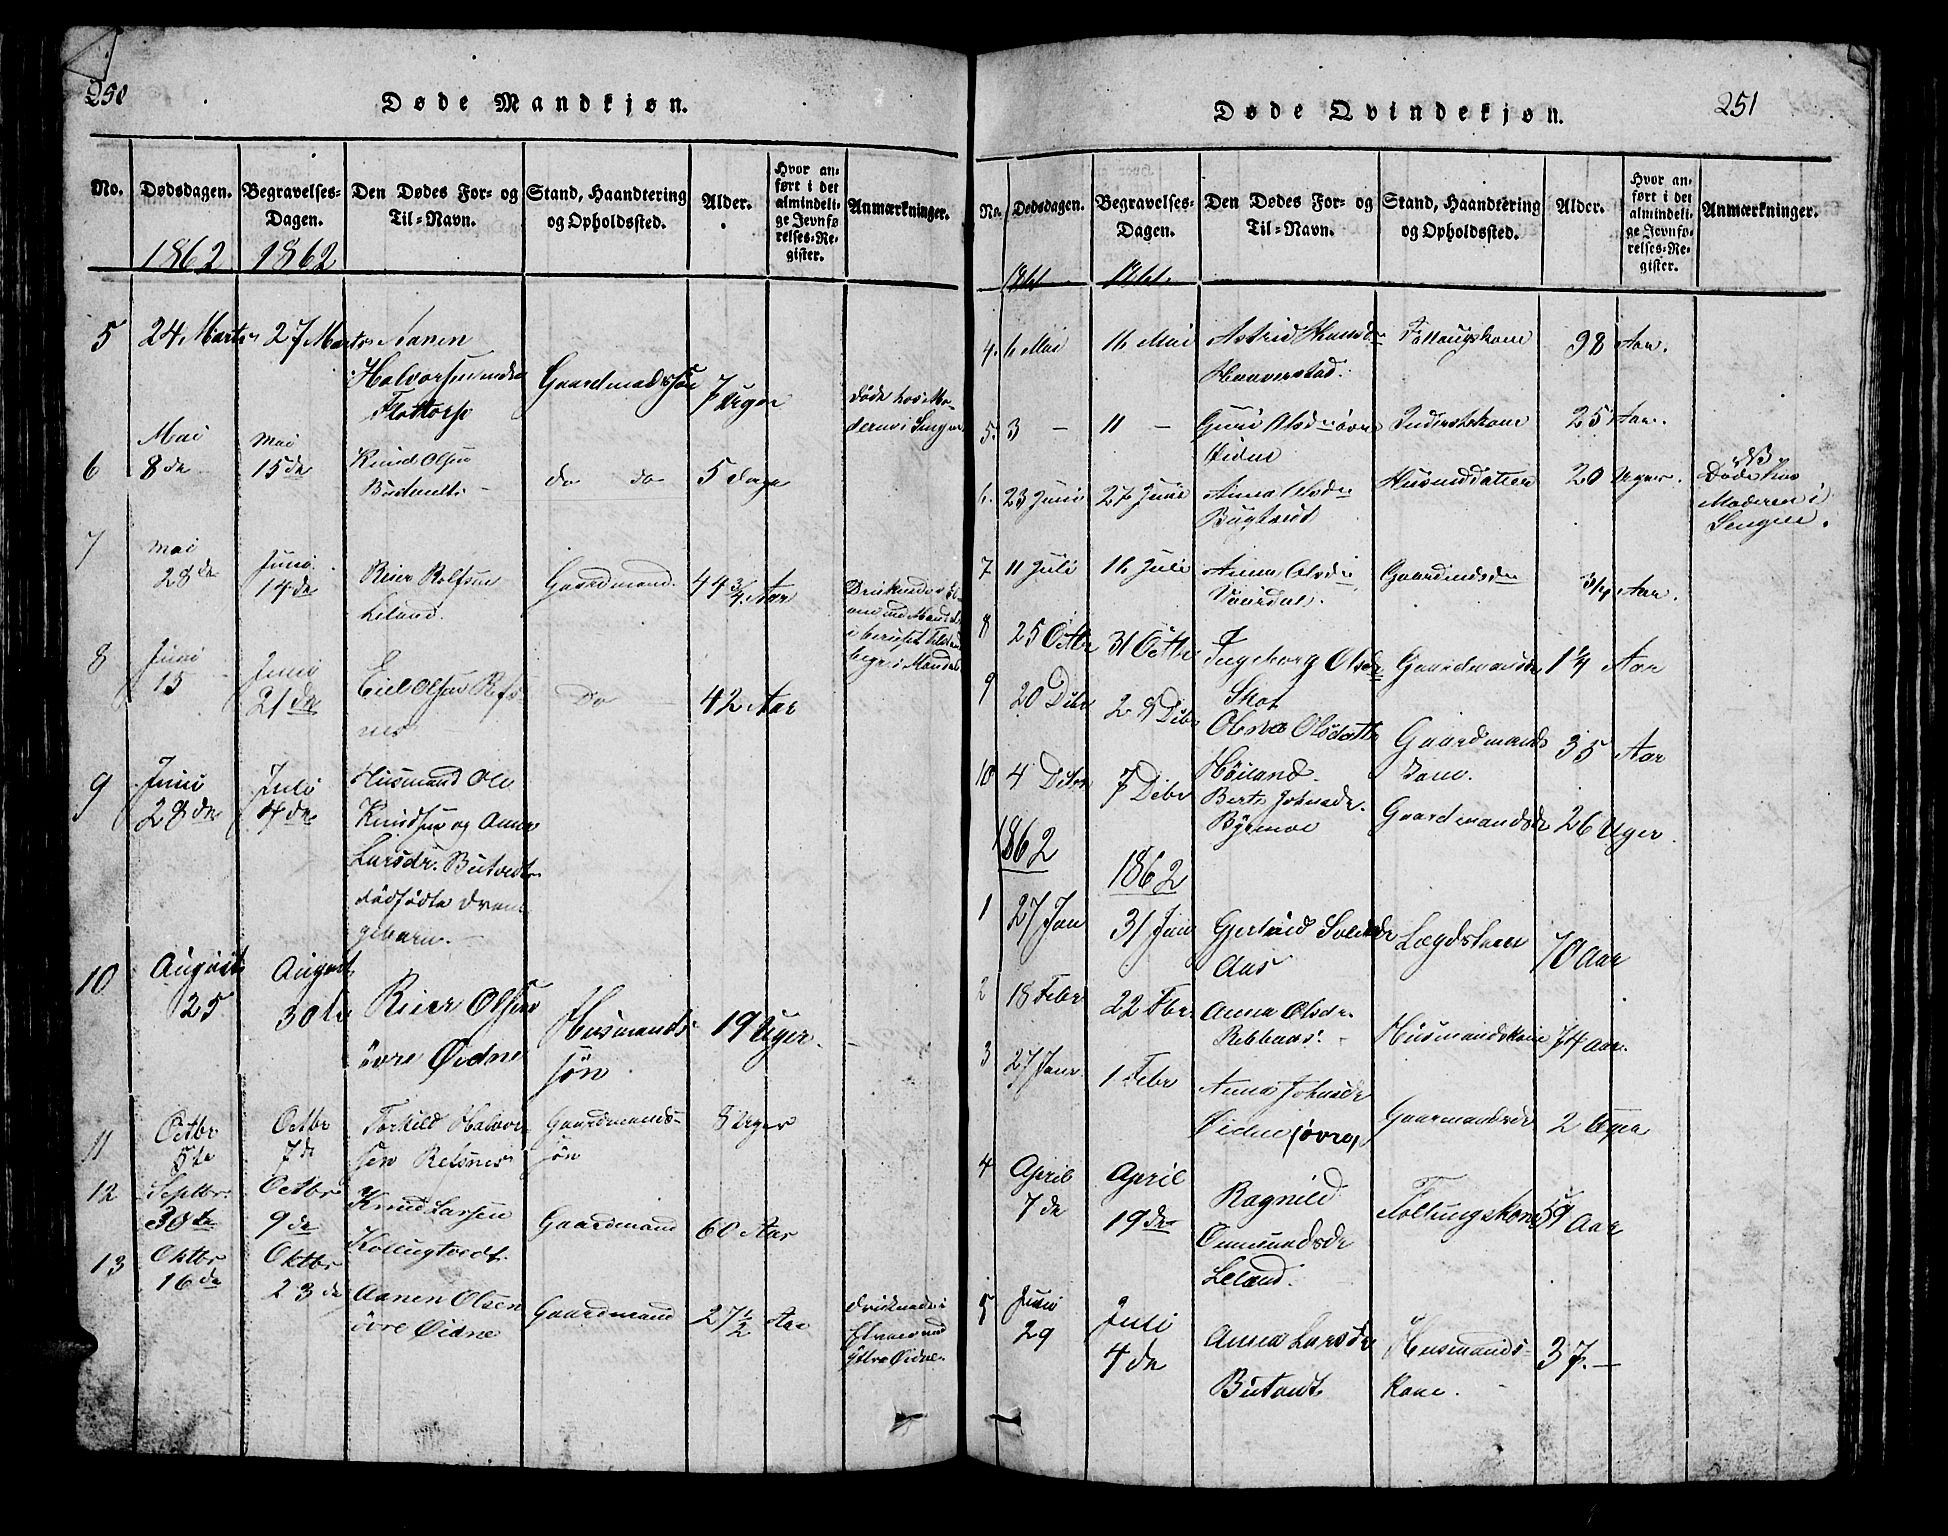 250
Døde Mandkjøn.
No.
Dødsdagen.
Begravelses-Dagen.
Den Dødes For- og Til-Navn.
Stand, Haandtering og Opholdssted.
Alder.
Hvor anført i det almindelige Jevnførelses-Register.
Anmærkninger.
1862 1862
5 24 Marts 27 Marts Aanen
Halvorsen
Flottorp
Gaardmadssøn 7 Uger døde hos Moderen i Sengen
6 Mai 8de Mai 15de Knud Olsen
do do 5 dage
7 Mai 28de Juni 14de Reier Rolfsen
Leland.
Gaardmand. 44 3/4 Aar
8 Juni 15 Juni 21de Eiel Olsen Refsnes
Do 42 Aar
9 Juni 28de Juli 4de Husmand Ole
Knudsen og Anna
Larsdr. Butvedts
dödfödte Drengebarn.
10 August 25 August 30te Reier Olsen
övre Øidne
Husmandssön 19 Uger.
11 Octbr 5te Octbr 7de Torkild Halvorsen Refsnes
Gaardmandssön 8 Uger
12 Septbr. 30te Octbr 9de Knud Larsen
Kollugtvedt.
Gaardmand 60 Aar
13 Oktbr 16de Oktbr 23de Aanen Olsen
övre Øidne
Gaardmand 27 1/2 Aar druknede i Elven ved yttre Øidne.
251
Døde Qvindekjøn.
No.
Dødsdagen.
Begravelses-Dagen.
Den Dødes For- og Til-Navn.
Stand, Haandtering og Opholdssted.
Alder.
Hvor anført i det almindelige Jevnførelses-Register.
Anmærkninger.
1861 1861.
4. 6 Mai 16 Mai Astrid
Haaverstad.
Föllaugskone 98 Aar.
5. 3 – 11 – Guri Olsdr övre
Øidne
Inderstekone 25 Aar.
6. 23 Juni 27 Juni Anna Olsdr
Husmdatter 20 Uger. Döde hos Moderen i Sengen.
7 11 Juli 16 Juli Anna Olsdr
Vaardal.
Gaardmdsdr 3/4 Aar.
8 25 Octbr 31 Octbr Ingeborg Olsdr
Skot
Gaardmandsdr 1 1/4 Aar
9 20 Dcbr 28 Dcbr Olsdattr
Höiland.
Gaardmands
kone.
35 Aar
10 4 Dcbr 7 Dcbr Berte Johnsdr.
Byremoe
Gaardmandsdr 26 Uger.
1862 1862
1 27 Jan 31 Jan Gjertrud
Aas
Lægdskone 70 Aar
2 18 Febr 22 Fbr. Anna Olsdr.
Husmandskone 74 Aar.
3 27 Janr 1 Febr Anna Johnsdr
Øidne (övre)
Gaarmandsdr 2 Uger
4 April 7de April 19de Ragnild
Omundsdr
Leland.
Föllaugskone 59 Aar
5 Juni 29 Juli 4de Anna Larsdr
Butvedt
Husmands-
kone.
37. –